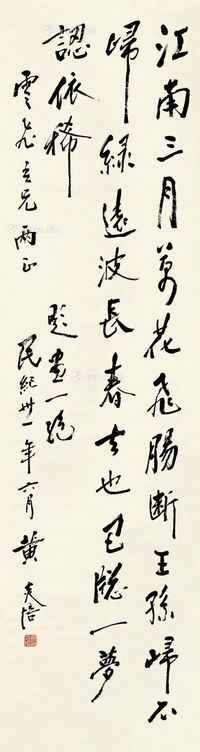 江南三月萬花飛腸斷王孫歸不
歸綠遠波長春去也已殘一夢
認依稀
題畫一絕
雲老立兄兩正
民紀卅一年六月黃炎培